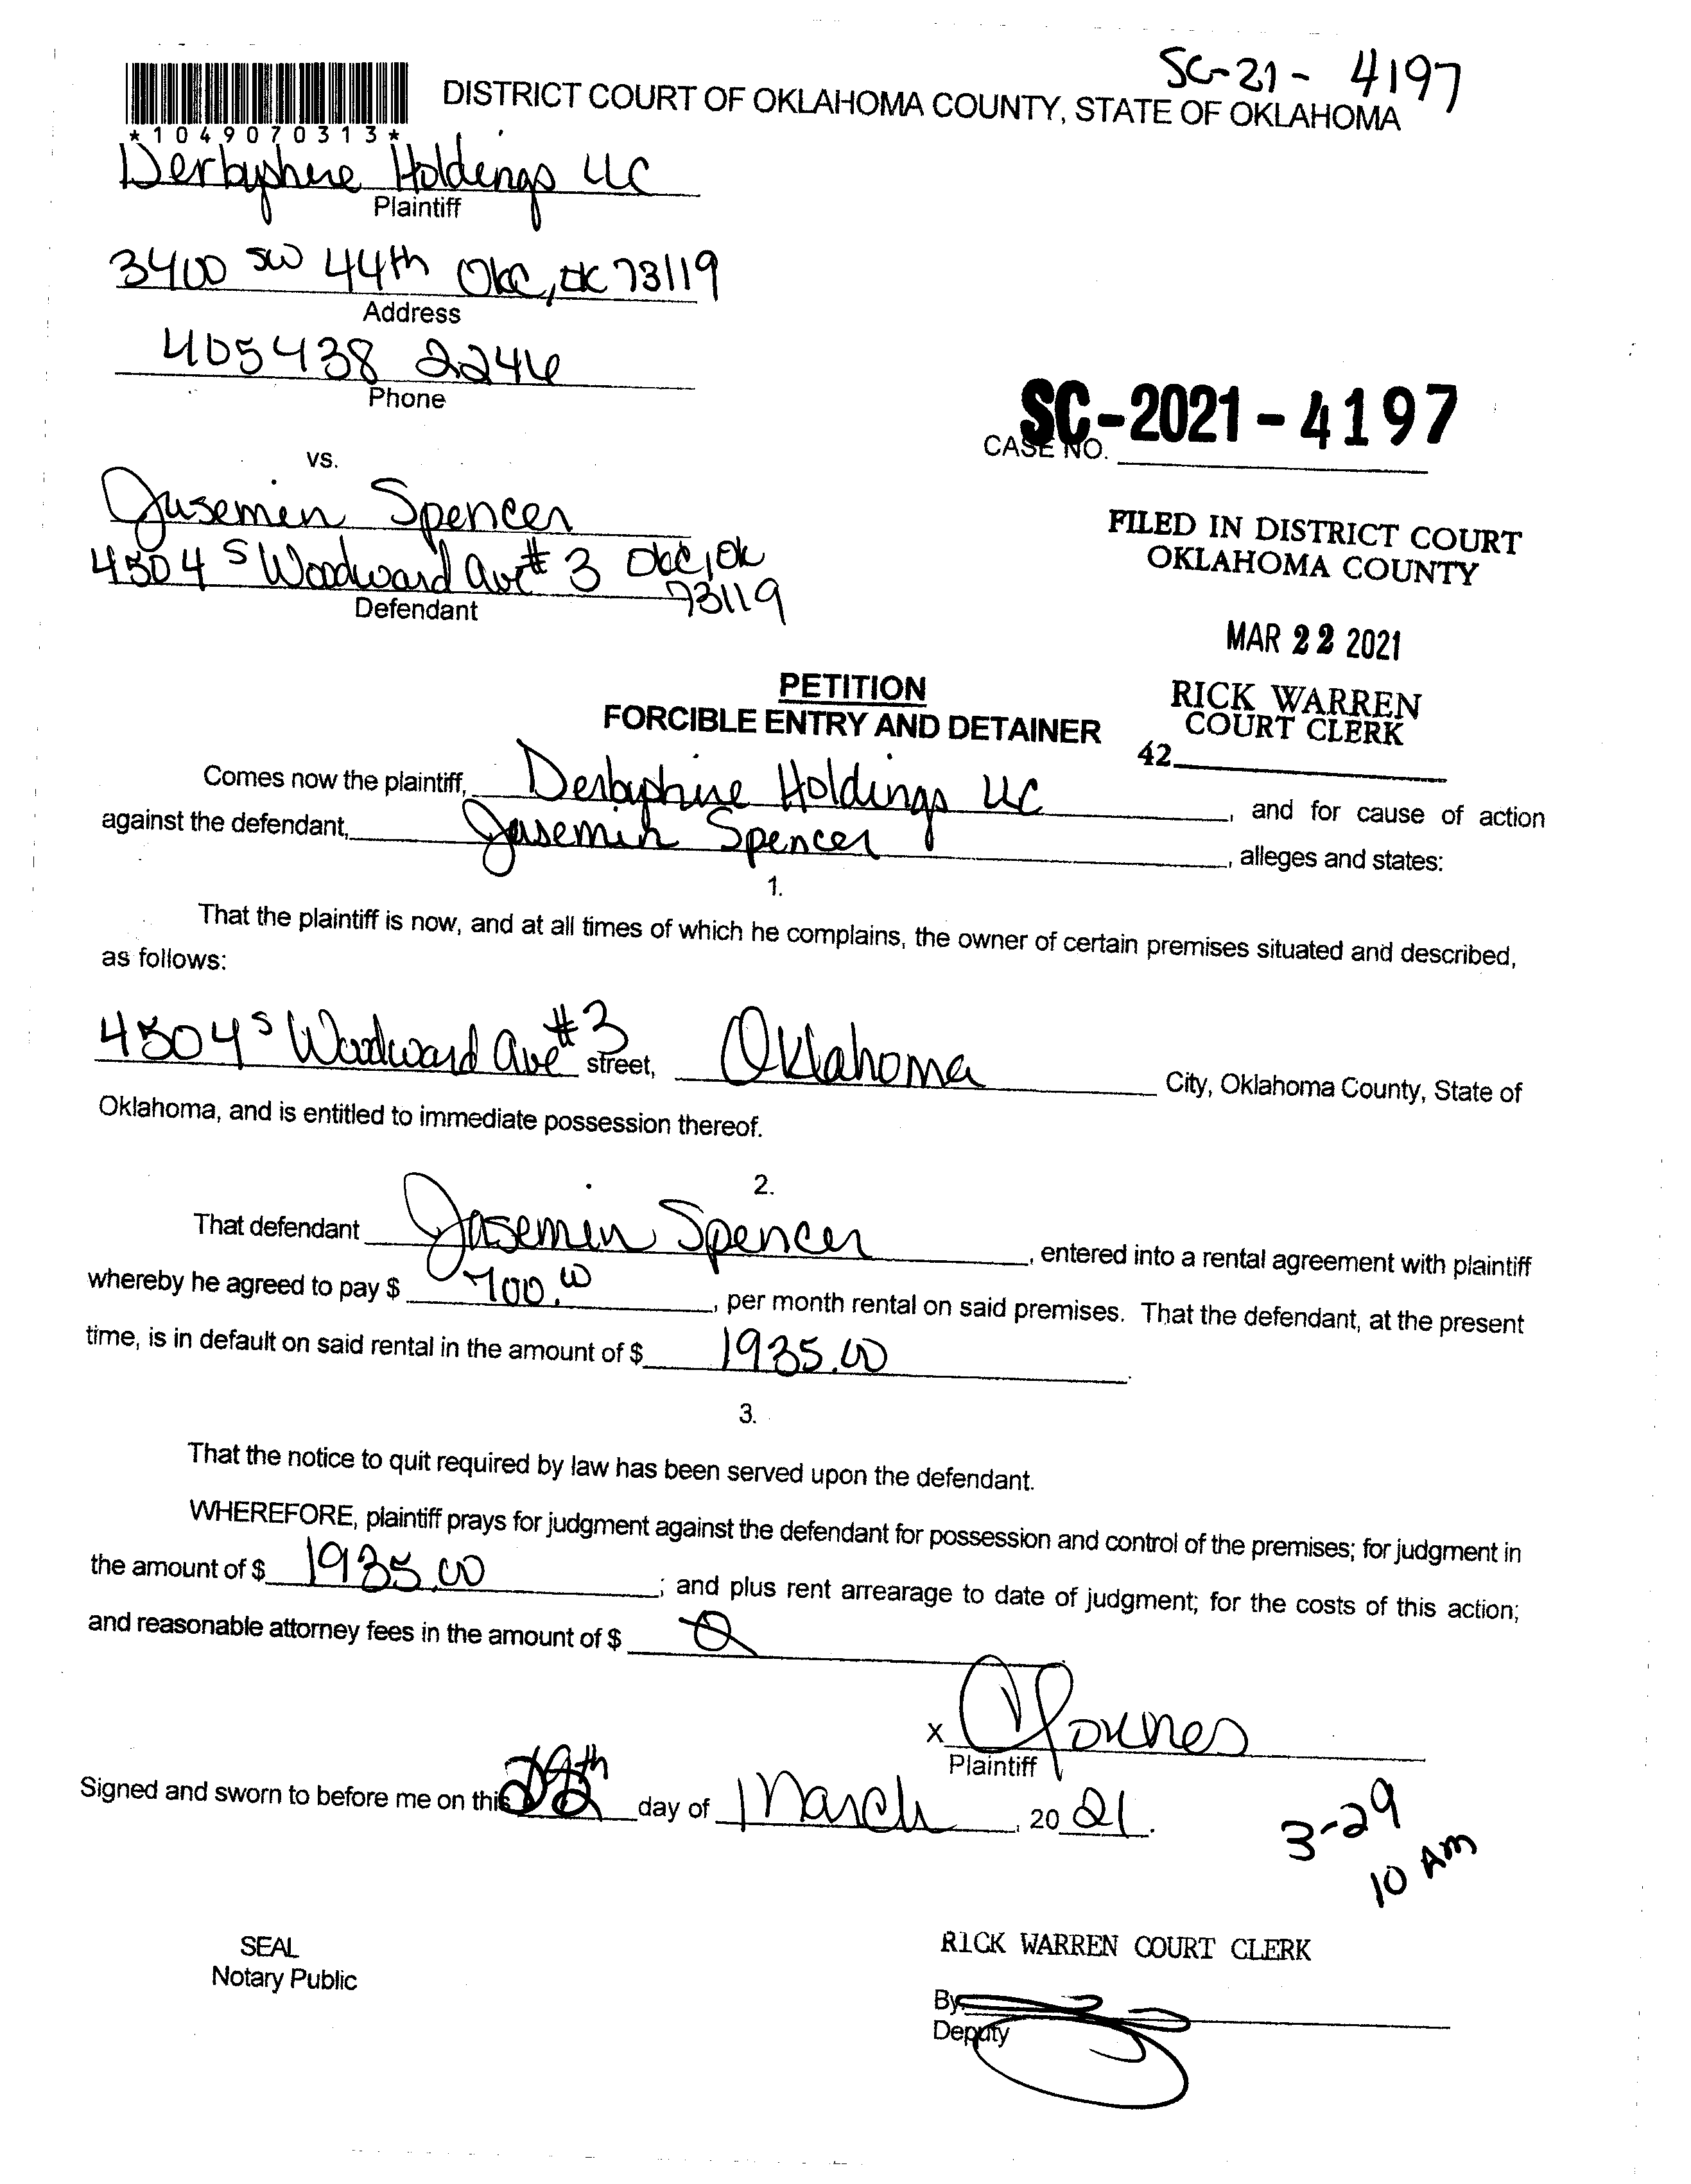 SC-21-4197
DISTRICT COURT OF OKLAHOMA COUNTY, STATE OF OKLAHOMA
*1049070313*
Derbyshire Holdings LLC
Plaintiff
3400 SW 44th OKC, OK 73119
Address
405 438 2246
Phone
SC-2021-4197
CASE NO.
vs.
Jasemin Spencer
4504 S Woodward Ave # 3 OKC, OK
73119
Defendant
FILED IN DISTRICT COURT
OKLAHOMA COUNTY
MAR 22 2021
RICK WARREN
COURT CLERK
42
PETITION
FORCIBLE ENTRY AND DETAINER
Comes now the plaintiff, Derbyshire Holdings LLC, and for cause of action
against the defendant, Jasemin Spencer, alleges and states:
1.
That the plaintiff is now, and at all times of which he complains, the owner of certain premises situated and described,
as follows:
4504 S Woodward Ave #3 street, Oklahoma City, Oklahoma County, State of
Oklahoma, and is entitled to immediate possession thereof.
2.
That defendant Jasemin Spencer, entered into a rental agreement with plaintiff
whereby he agreed to pay $ 700.00, per month rental on said premises. That the defendant, at the present
time, is in default on said rental in the amount of $ 1935.00.
3.
That the notice to quit required by law has been served upon the defendant.
WHEREFORE, plaintiff prays for judgment against the defendant for possession and control of the premises; for judgment in
the amount of $ 1935.00; and plus rent arrearage to date of judgment; for the costs of this action;
and reasonable attorney fees in the amount of $ 0
X
Plaintiff
Signed and sworn to before me on this day of March, 2021.
3-29
10 AM
SEAL
Notary Public
RICK WARREN COURT CLERK
By
Deputy